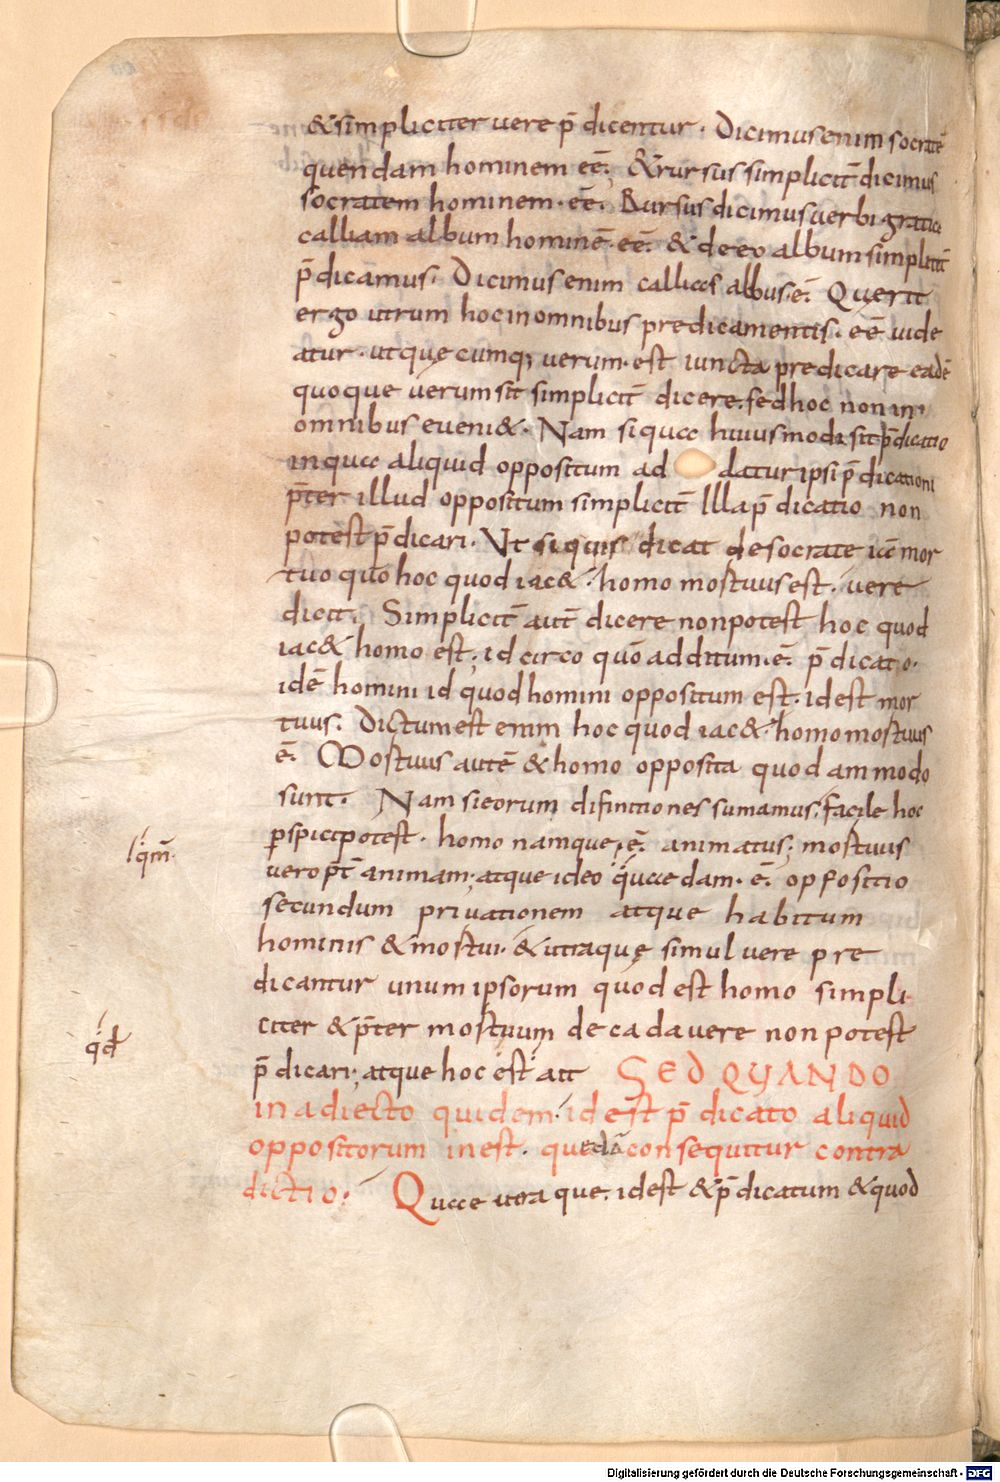 & simpliciter vere p̄dicentur. Dicimus enim socratē
quendam hominem eē; & rursus simplicit̄ dicimus
socratem hominem eē. Rursus dicimus verbi gratia
calliam album hominē eē. & de eo album simplicit̄
p̄dicamus. Dicimus enim callias albus ē. Querit
ergo utrum hoc in omnibus predicamentis eē vide
atur. ut que cumq; verum est iuncta predicare eadē
quoque verum sit simplicit̄ dicere. sed hoc non in
omnibus eveni&. Nam si qua huiusmodi sit p̄dicatio
in qua aliquid oppositum ad datur ipsi p̄dicationi
p̄ter illud oppositum simplicit̄ Illa p̄dicatio non
potest p̄dicari. Ut si quis dicat de socrate iā mor
tuo quō hoc quod iac& homo mostuus est. vere
dicit. Simplicit̄ aut̄ dicere non potest hoc quod
iac& homo est; id circo quō additum ē. p̄dicato.
idē homini id quod homini oppositum est. id est mor
tuus. Dictum est enim hoc quod iac& homo mostuus
ē. Mostuus autē & homo opposita quod ammodo
sunt. Nam si eorum difinitiones sumamus. facile hoc
pspici potest. homo namque ē. animatus; mostuus
l' qm̄.
vero p̄t animam. atque ideo quaedam ē. oppositio
secundum privationem atque habitum
hominis & mostui. & utraque simul vere pre
dicantur unum ipsorum quod est homo simpli
citer & p̄ter mostuum de cadavere non potest
qd
p̄dicari; atque hoc est ait SED QUANDO
in adiecto quidem. id est p̄dicato aliquid
oppositorum inest. quedā consequitur contra
dictio. Quae utraque. id est & p̄dicatum & quod
Digitalisierung gefördert durch die Deutsche Forschungsgemeinschaft - DFG